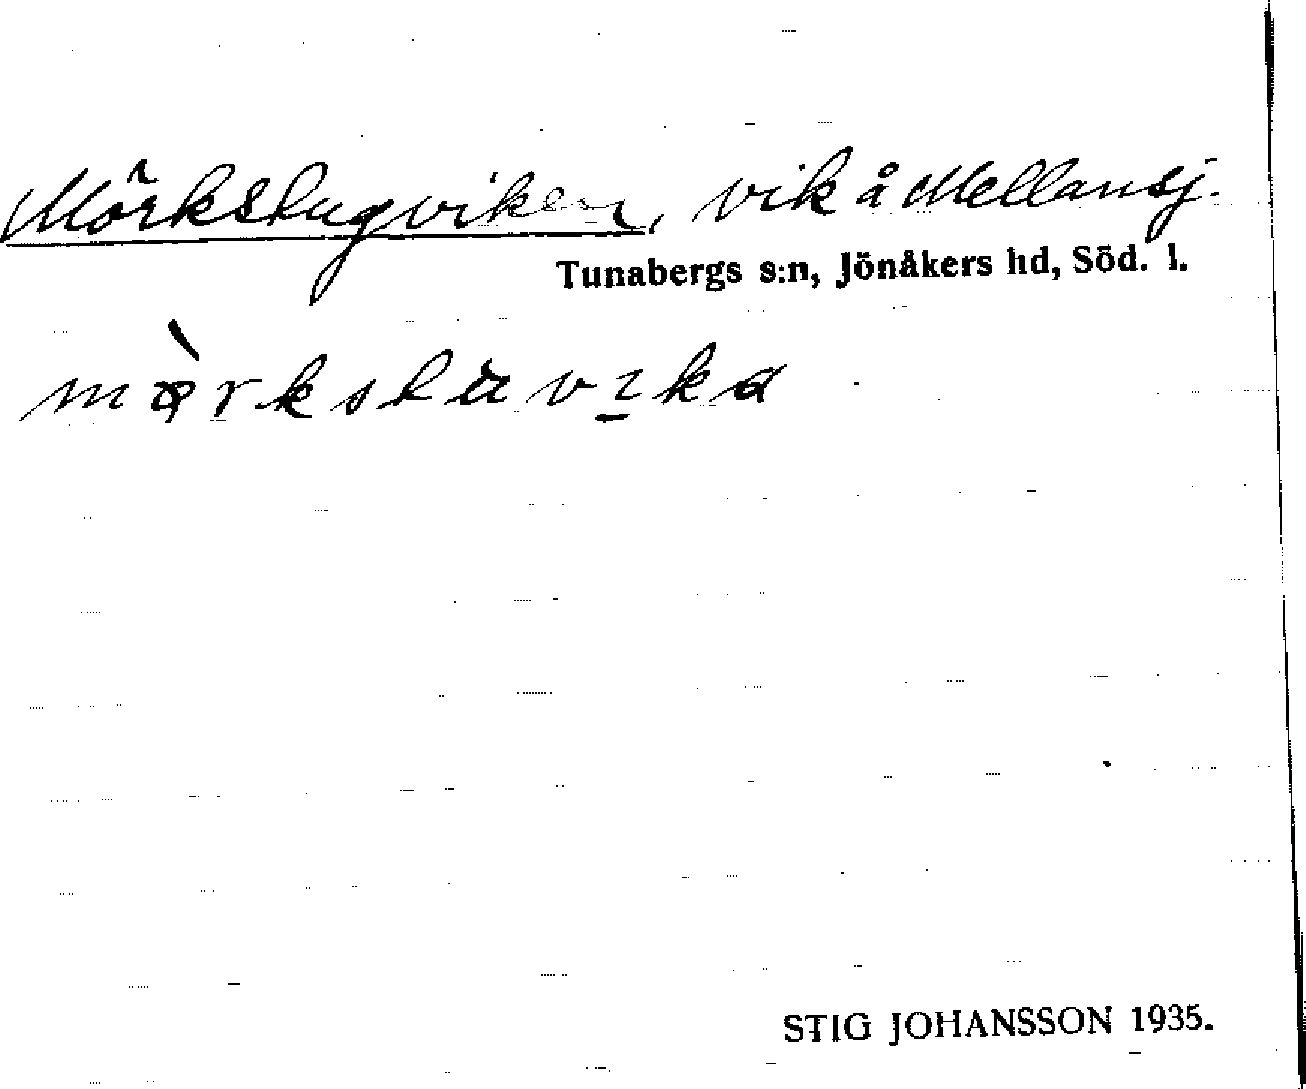 Mörkstugviken, vik å Mellansj.
Tunabergs s:n, Jönåkers hd, Söd. l.
STIG JOHANSSON 1935.